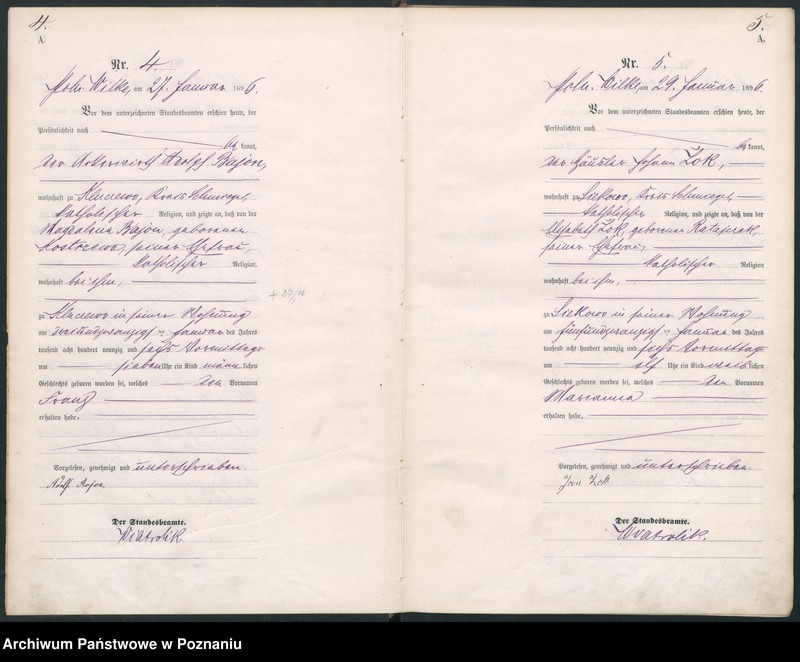 4.
A
Nr. 4.
Poln. Wilke, am 27. Januar 1896.
Vor dem unterzeichneten Standesbeamten erschien heute, der
Persönlichkeit nach
be kannt,
der Ackerwirth Adolf Bajon,
wohnhaft zu Kluczewo, Kreis Schmiegel,
katholischer Religion, und zeigte an, daß von der
Magdalena Bajon, geborenen
Kostrzewa, seiner Ehefrau,
katholischer Religion,
wohnhaft bei ihm,
zu Kluczewo in seiner Wohnung
am dreiundzwanzigsten Januar des Jahres
tausend acht hundert neunzig und sechs Vormittags
um sieben Uhr ein Kind männlichen
Geschlechts geboren worden sei, welches den Vornamen
Franz
erhalten habe.
Vorgelesen, genehmigt und unterschrieben.
Adolf Bajon
Der Standesbeamte.
Wiatrolik.
5.
A.
Nr. 5.
Poln. Wilke, am 29. Januar 1896.
Vor dem unterzeichneten Standesbeamten erschien heute, der
Persönlichkeit nach
be kannt,
der Häusler Johann Żok,
wohnhaft zu Siekowo, Kreis Schmiegel,
katholischer Religion, und zeigte an, daß von der
Elisabeth Żok, geborenen Ratajczak,
seiner Ehefrau,
katholischer Religion
wohnhaft bei ihm,
zu Siekowo in seiner Wohnung
am fünfundzwanzigsten Januar des Jahres
tausend acht hundert neunzig und sechs Vormittags
um elf Uhr ein Kind weiblichen
Geschlechts geboren worden sei, welches den Vornamen
Marianna
erhalten habe.
Vorgelesen, genehmigt und unterschrieben.
Jan Żok
Der Standesbeamte.
Wiatrolik.
Archiwum Państwowe w Poznaniu